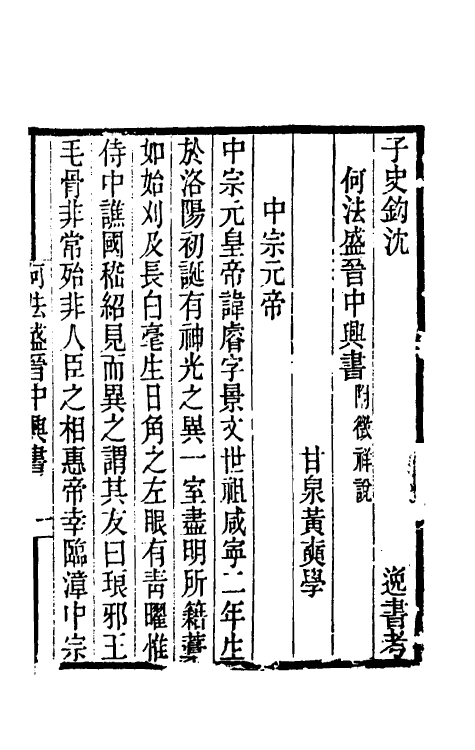 子史鈎沈 逸書考
何法盛晉中興書 附徵祥說
甘泉黃奭學
中宗元帝
中宗元皇帝諱睿字景文世祖咸寧二年生
於洛陽初誕有神光之異一室盡明所籍藁
如始刈及長白毫生日角之左眼有靑曜惟
侍中譙國嵇紹見而異之謂其友曰琅邪王
毛骨非常殆非人臣之相惠帝幸臨漳中宗
何法盛晉中興書 一